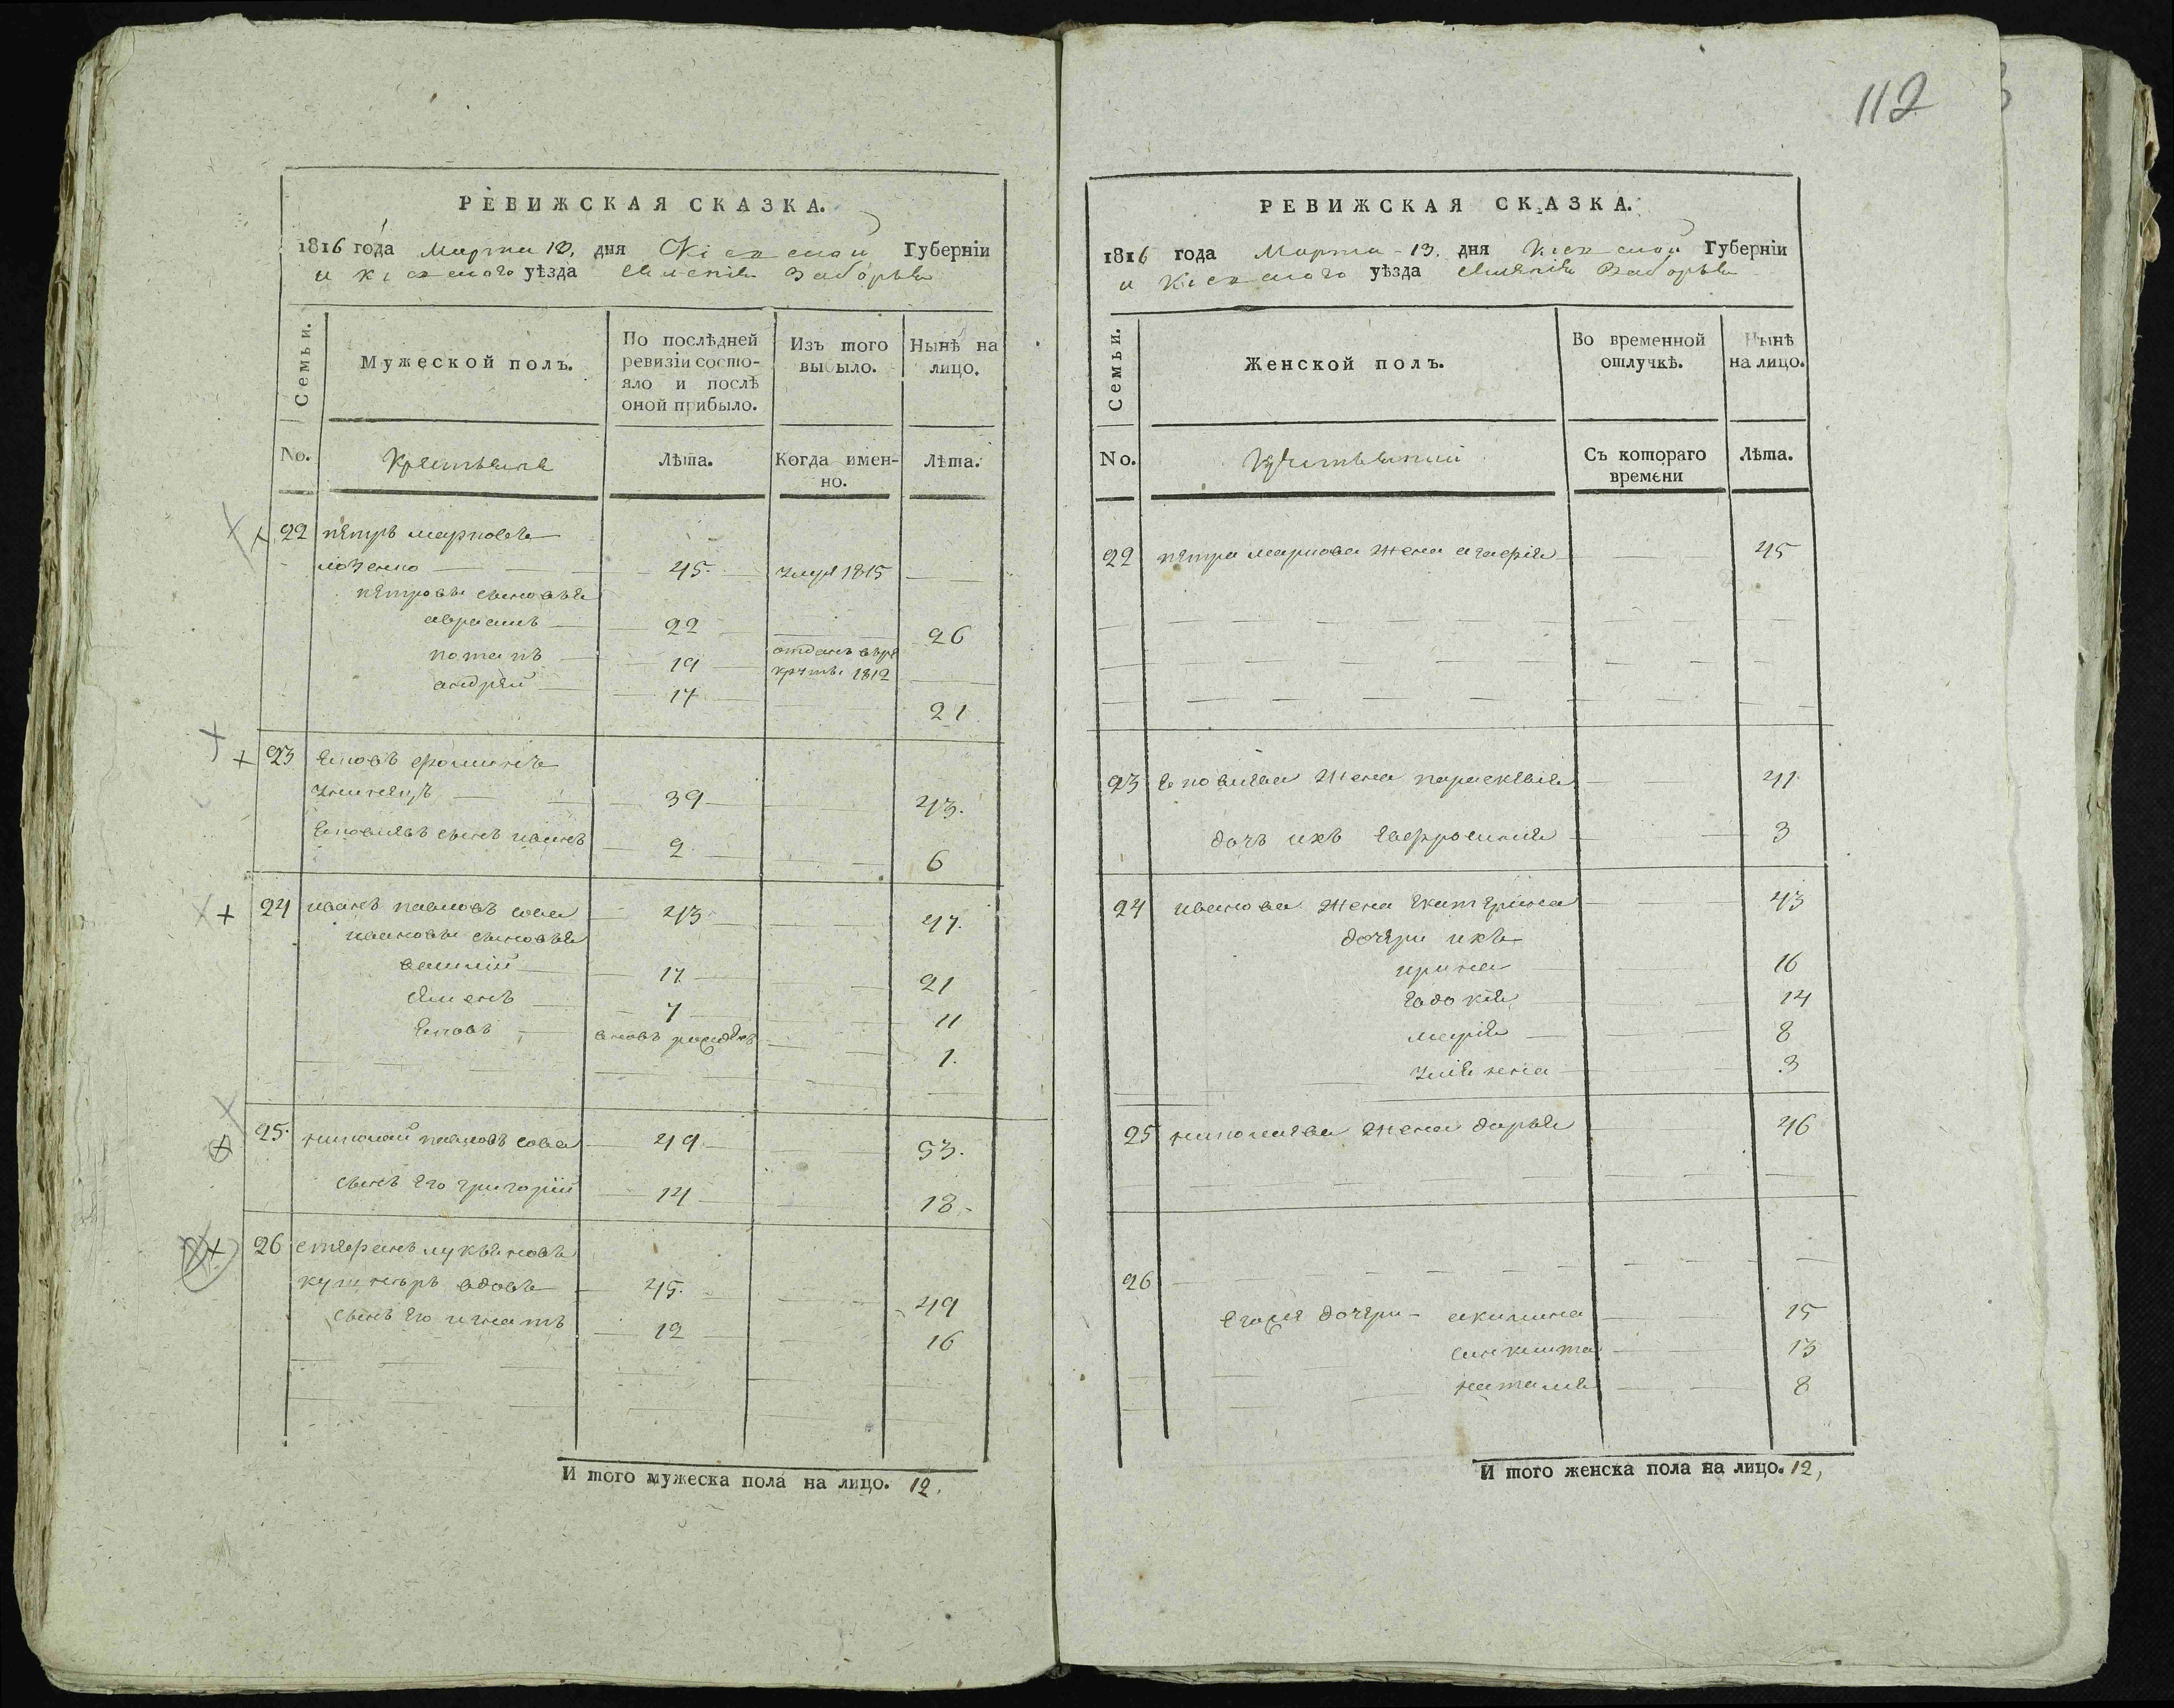 112
РЕВИЖСКАЯ СКАЗКА.
1816 года Марта 13, дня Кіевской Губерніи
и кіевского уѣзда Имѣнія Заборья
Семьи.
Мужеской полъ.
По послѣдней ревизіи состояло и послѣ оной прибыло.
Изъ того выбыло.
Нынѣ на лицо.
No.
Крестьяне
Лѣта.
Когда именно.
Лѣта.
22 петръ марковъ
45 умре 1815
петровы сыновья
авраамъ 22 26
потапъ 19 отданъ въ рекруты 1812
андрей 17 21
23 Яковъ фоминъ
39 43.
Яковлевъ сынъ иванъ 2 6
24 иванъ павловъ сова 43 47.
ивановы сыновья
василій 17 21
семенъ 7 11
Яковъ вновь рожденъ 1.
25. николай павловъ сова 49 53.
сынъ его григорій 14 18
26 стефанъ лукьяновъ
кушниръ вдовъ 45. 49
сынъ его игнатъ 12 16
И того мужеска пола на лицо. 12.
РЕВИЖСКАЯ СКАЗКА.
1816 года Марта 13. дня Кіевской Губерніи
и Кіевского уѣзда Имѣнія Заборья
Семьи.
Женской полъ.
Во временной отлучкѣ.
Нынѣ на лицо.
No.
Крестьянки
Съ котораго времени
Лѣта.
22 петра маркова жена агафія 45
23 Яковлева жена параскевія 41
дочь ихъ Евфросинія 3
24 иванова жена Екатерина 43
дочери ихъ
ирина 16
Евдокія 14
марія 8
уліянна 3
25 николаева жена дарья 46
26
Егоже дочери - акилина 15
синклита 13
наталія 8
И того женска пола на лицо. 12,